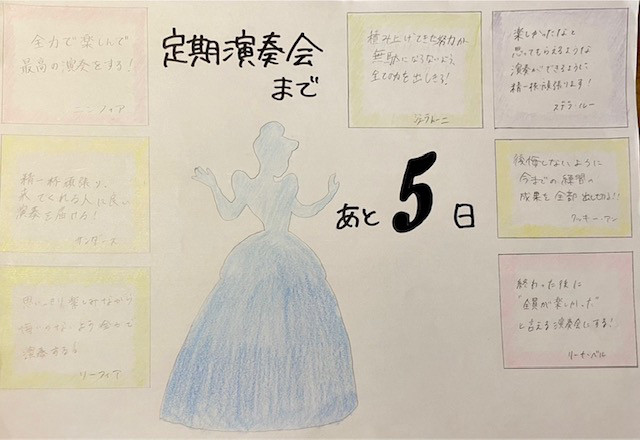 定期演奏会
まで
あと5日
全力で楽しんで
最高の演奏をする!
ニンフィア
精一杯頑張り、
来てくれる人に良い
演奏を届ける!
サンダース
楽しみながら
演奏する
リーフィア
積み上げてきた努力が
無駄にならないよう
全ての力を出しきる!
楽しかったなと
思ってもらえるような
演奏ができるように
精一杯頑張ります!
ステラ・ルー
後悔しないように
今までの練習の
成果を全部出し切る!!
クッキー・アン
終わった後に
"全員が楽しかった"
と言える演奏会にする!
リーナ・ベル